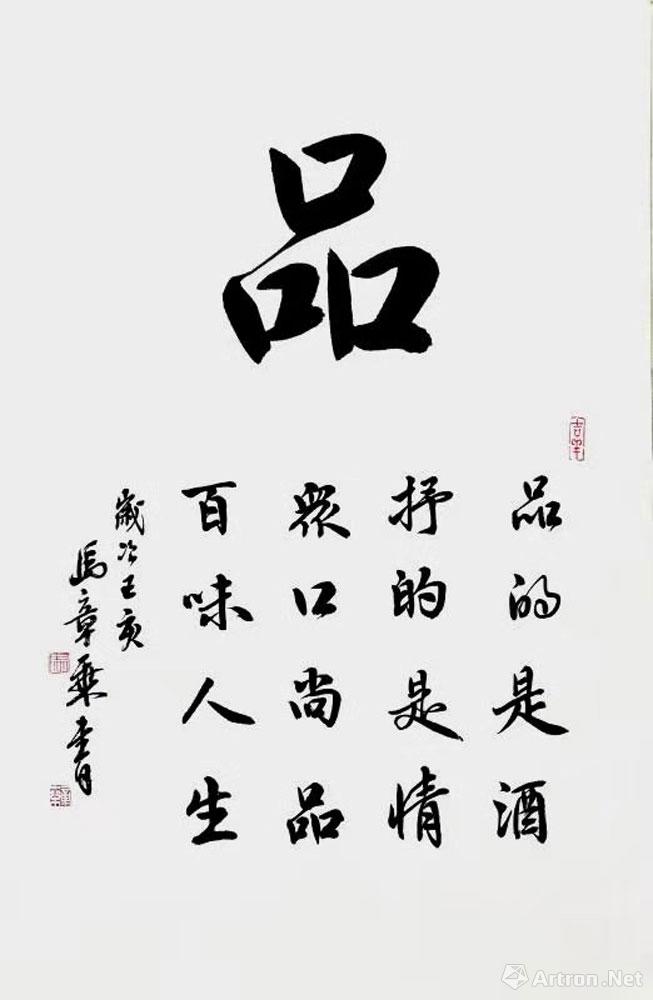 品
品的是酒
抒的是情
眾口尚品
百味人生
歲次
馬章乘書
Artron.Net